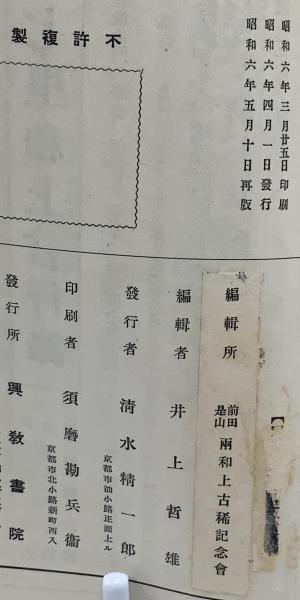 昭和六年三月廿五日印刷
昭和六年四月一日發行
昭和六年五月十日再版
不許複製
編輯所 前田是山兩和上古稀記念會
編輯者 井上哲雄
發行者 清水精一郎
京都市油小路正面上ル
印刷者 須磨勘兵衞
京都市北小路新町西入
發行所 興教書院